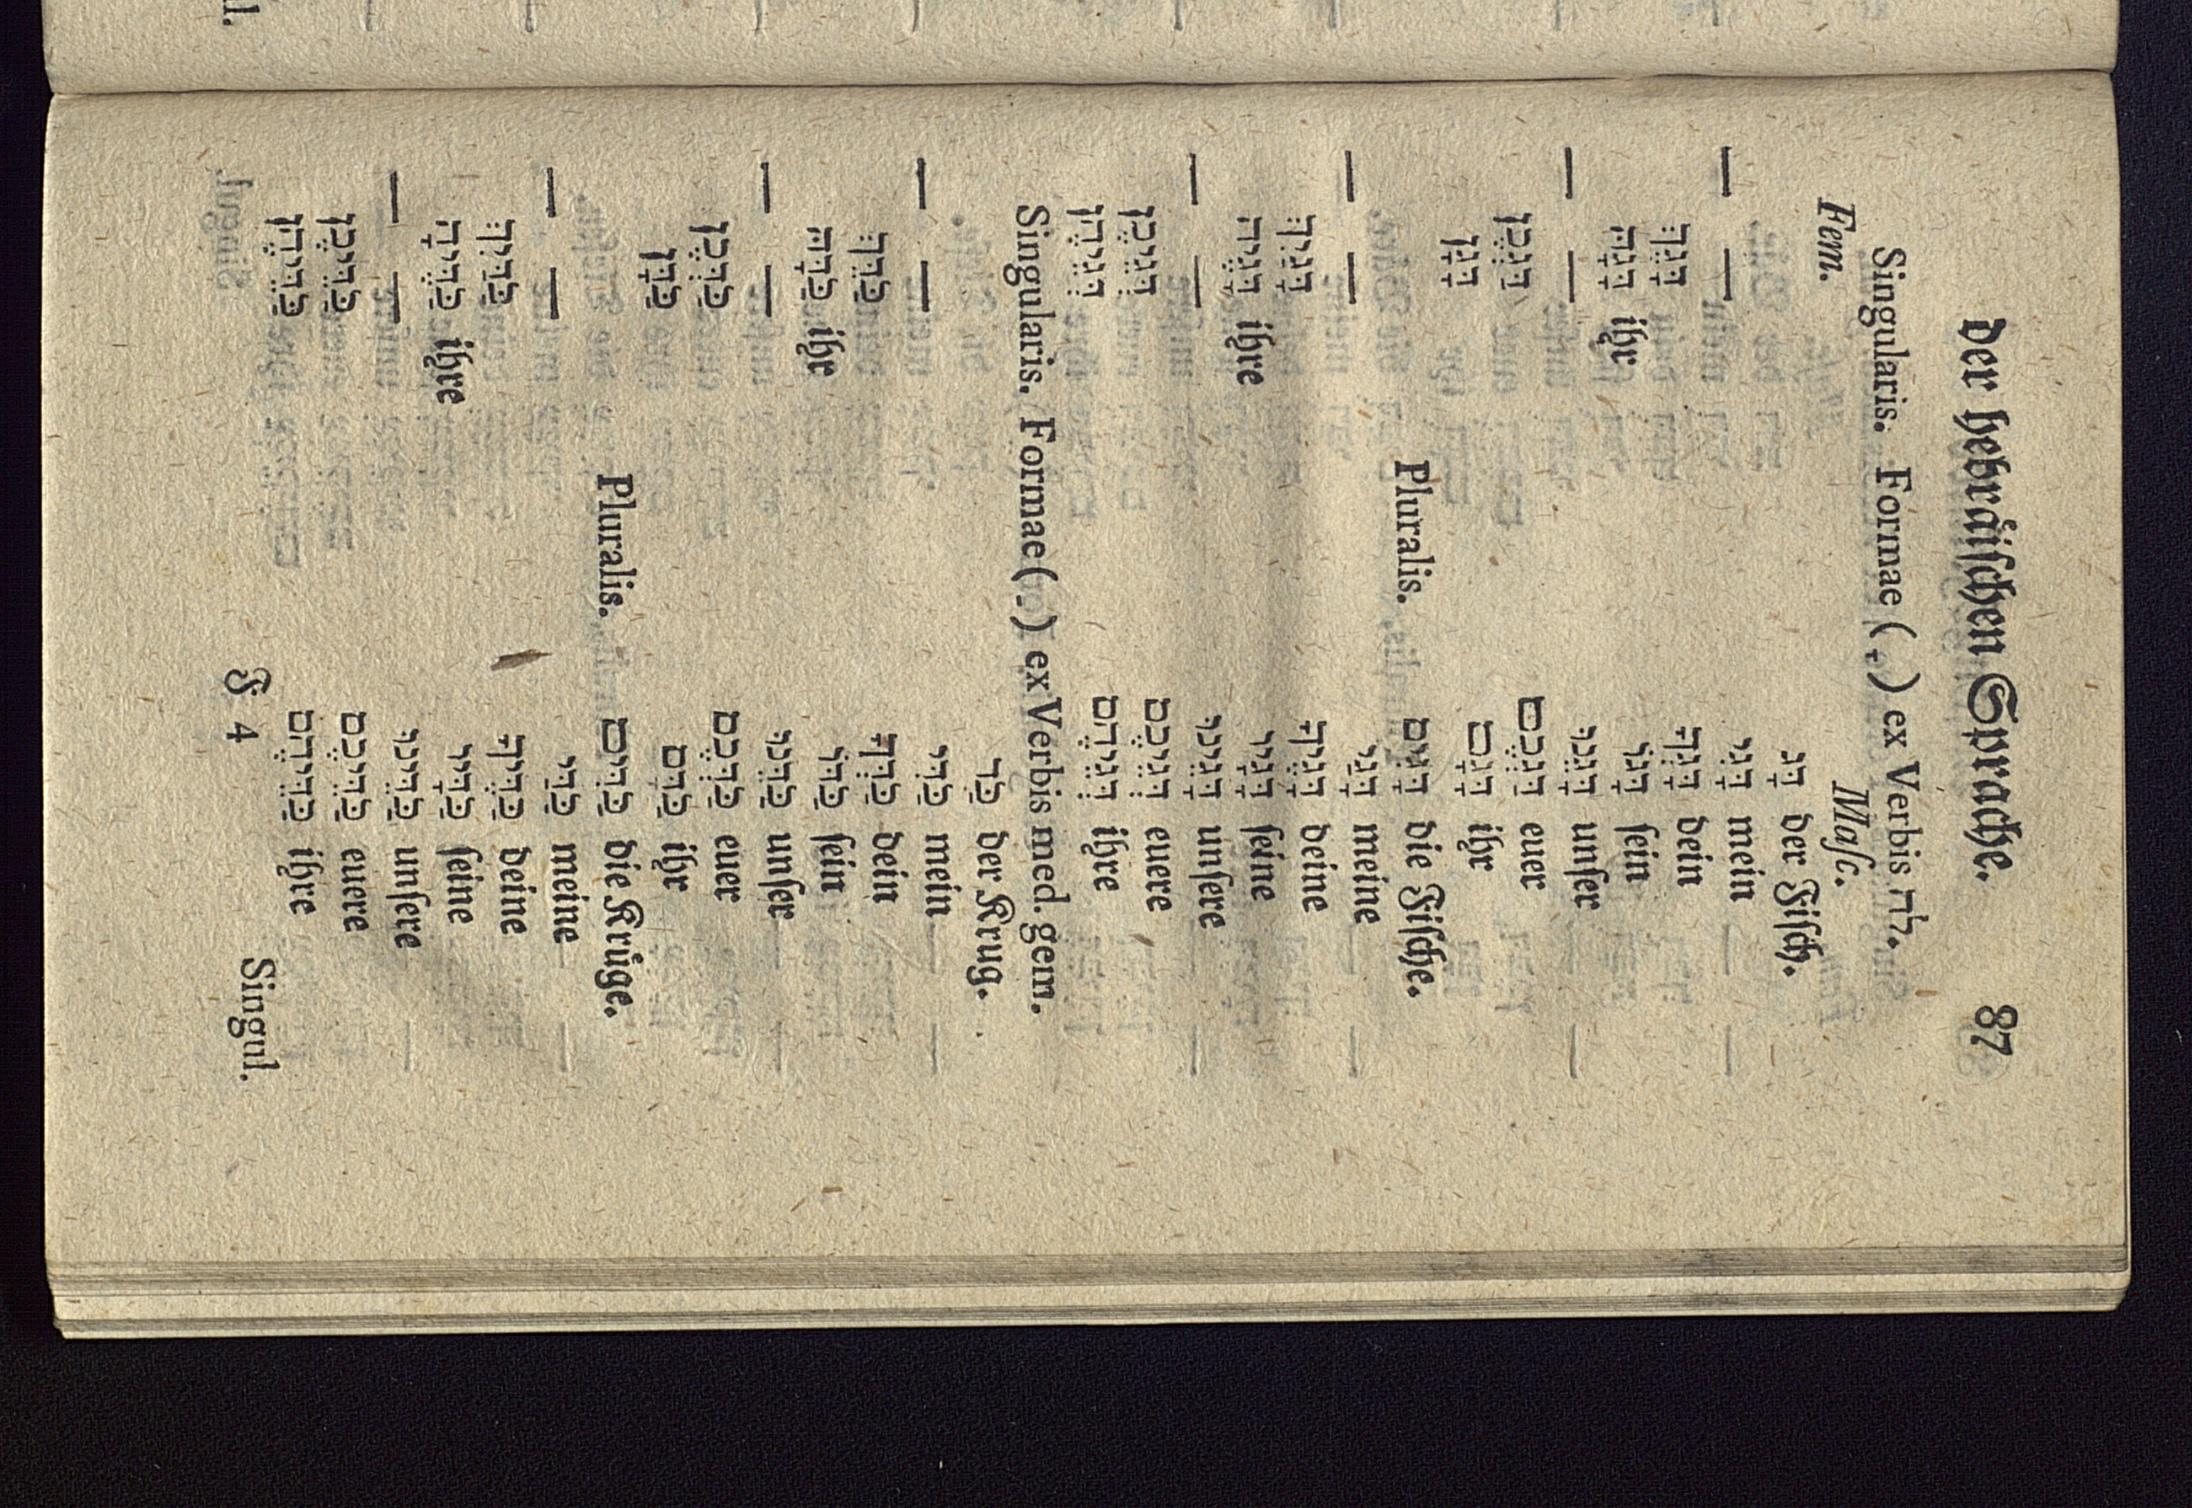 der hebräischen Sprache. 87
Singularis. Formae ( ָ ) ex Verbis לה.
Fem. Masc.
דָּג der Fisch.
— — דָּגִי mein
דָּגֵךְ דָּגְךָ dein
דָּגָהּ ihr דָּגוֹ sein
— — דָּגֵנוּ unser
דָּגְכֶן דָּגְכֶם euer
דָּגָן דָּגָם ihr
Pluralis. דָּגִים die Fische.
— — דָּגַי meine
דָּגַיִךְ דָּגֶיךָ deine
דָּגֶיהָ ihre דָּגָיו seine
— — דָּגֵינוּ unsere
דְּגֵיכֶן דְּגֵיכֶם euere
דְּגֵיהֶן דְּגֵיהֶם ihre
Singularis. Formae ( ַ ) ex Verbis med. gem.
כַּד der Krug.
— — כַּדִּי mein
כַּדֵּךְ כַּדְּךָ dein
כַּדָּהּ ihr כַּדּוֹ sein
— — כַּדֵּנוּ unser
כַּדְּכֶן כַּדְּכֶם euer
כַּדָּן כַּדָּם ihr
Pluralis. כַּדִּים die Krüge.
— — כַּדַּי meine
כַּדַּיִךְ כַּדֶּיךָ deine
כַּדֶּיהָ ihre כַּדָּיו seine
— — כַּדֵּינוּ unsere
כַּדֵּיכֶן כַּדֵּיכֶם euere
כַּדֵּיהֶן כַּדֵּיהֶם ihre
F 4 Singul.